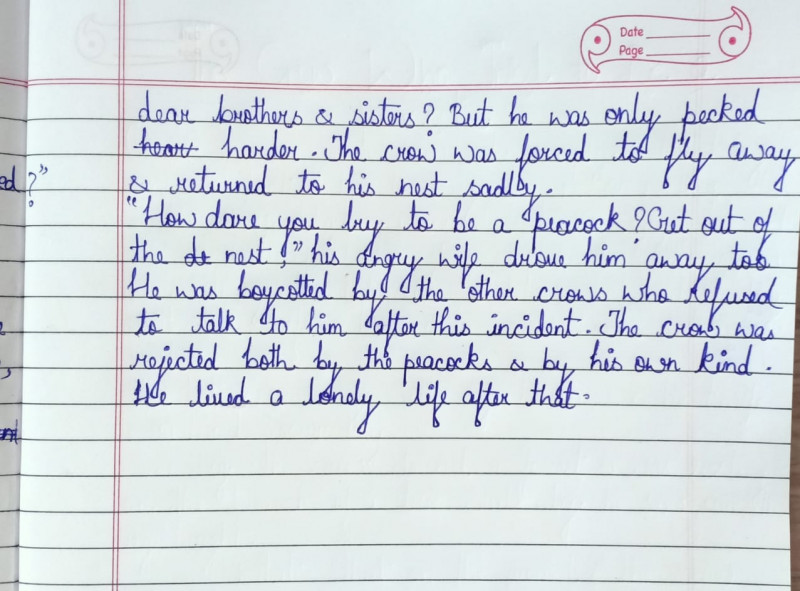 Date
Page
dear brothers & sisters? But he was only pecked
heart harder. The crow was forced to fly away
& returned to his nest sadly.
"How dare you try to be a peacock? Get out of
the de nest," his angry wife drove him away too
He was boycotted by the other crows who refused
to talk to him after this incident. The crow was
rejected both by the peacocks & by his own kind.
He lived a lonely life after that.
ed?"